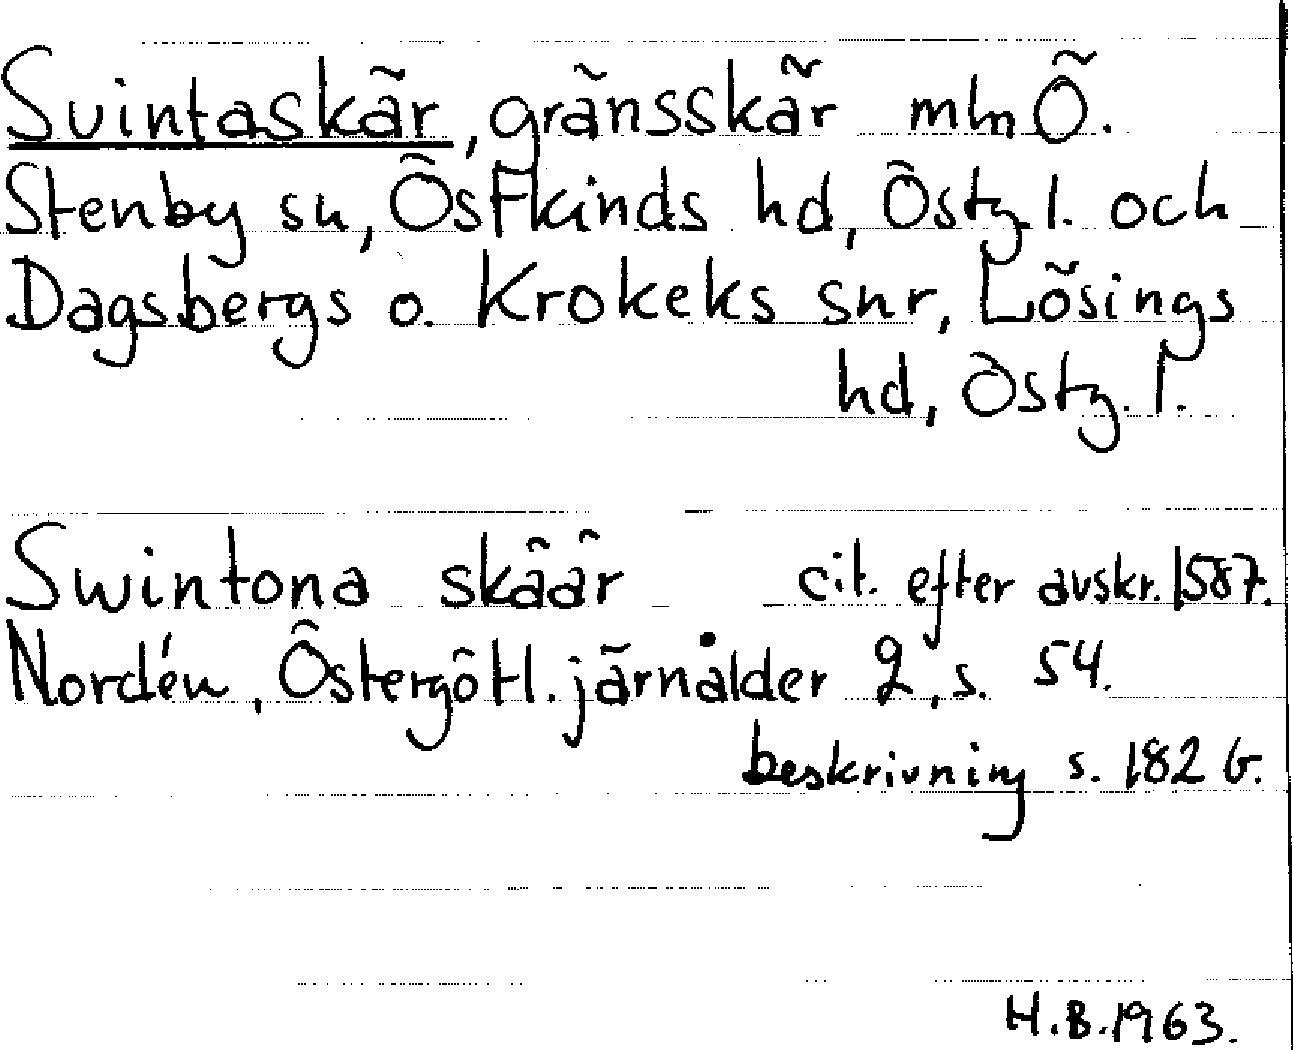 Svintaskär, gränsskär mln Ö.
Stenby sn, Östkinds hd, Östg. l. och
Dagsbergs o. Krokeks snr, Lösings
hd, Östg. l.
Swintona skäär cit. efter avskr. 1587.
Nordén, Östergötl. järnålder 2, s. 54.
beskrivning s. 182 b.
H.B. 1963.